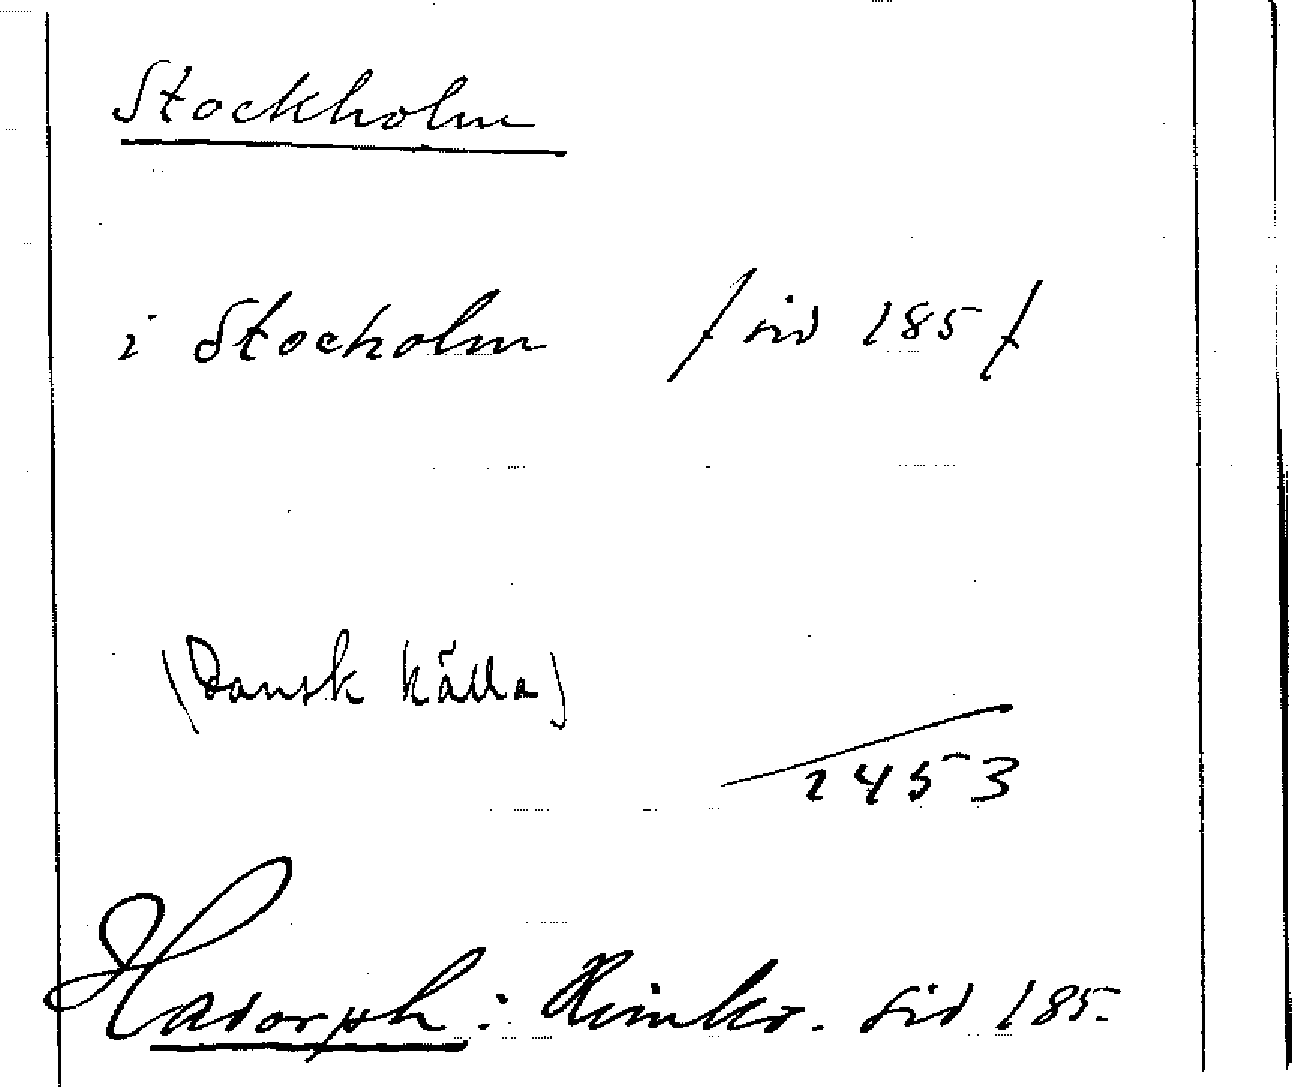 Stockholm
i Stocholm / sid 185 /
(Dansk källa)
1453
Hadorph: Rimkr. sid 185.